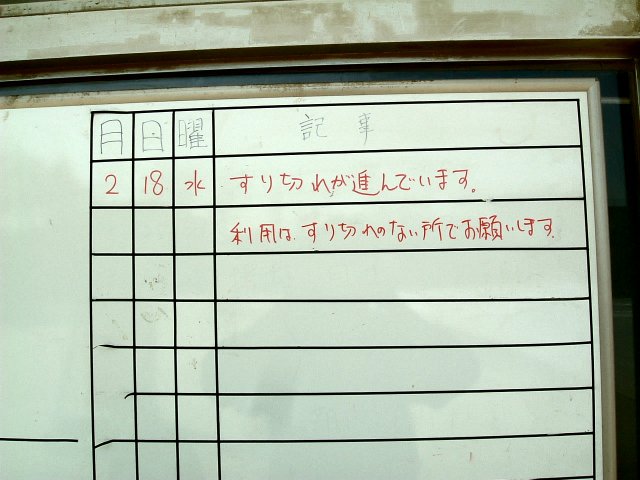 月 日 曜 記事
2 18 水 すり切れが進んでいます。
利用は、すり切れのない所でお願いします。